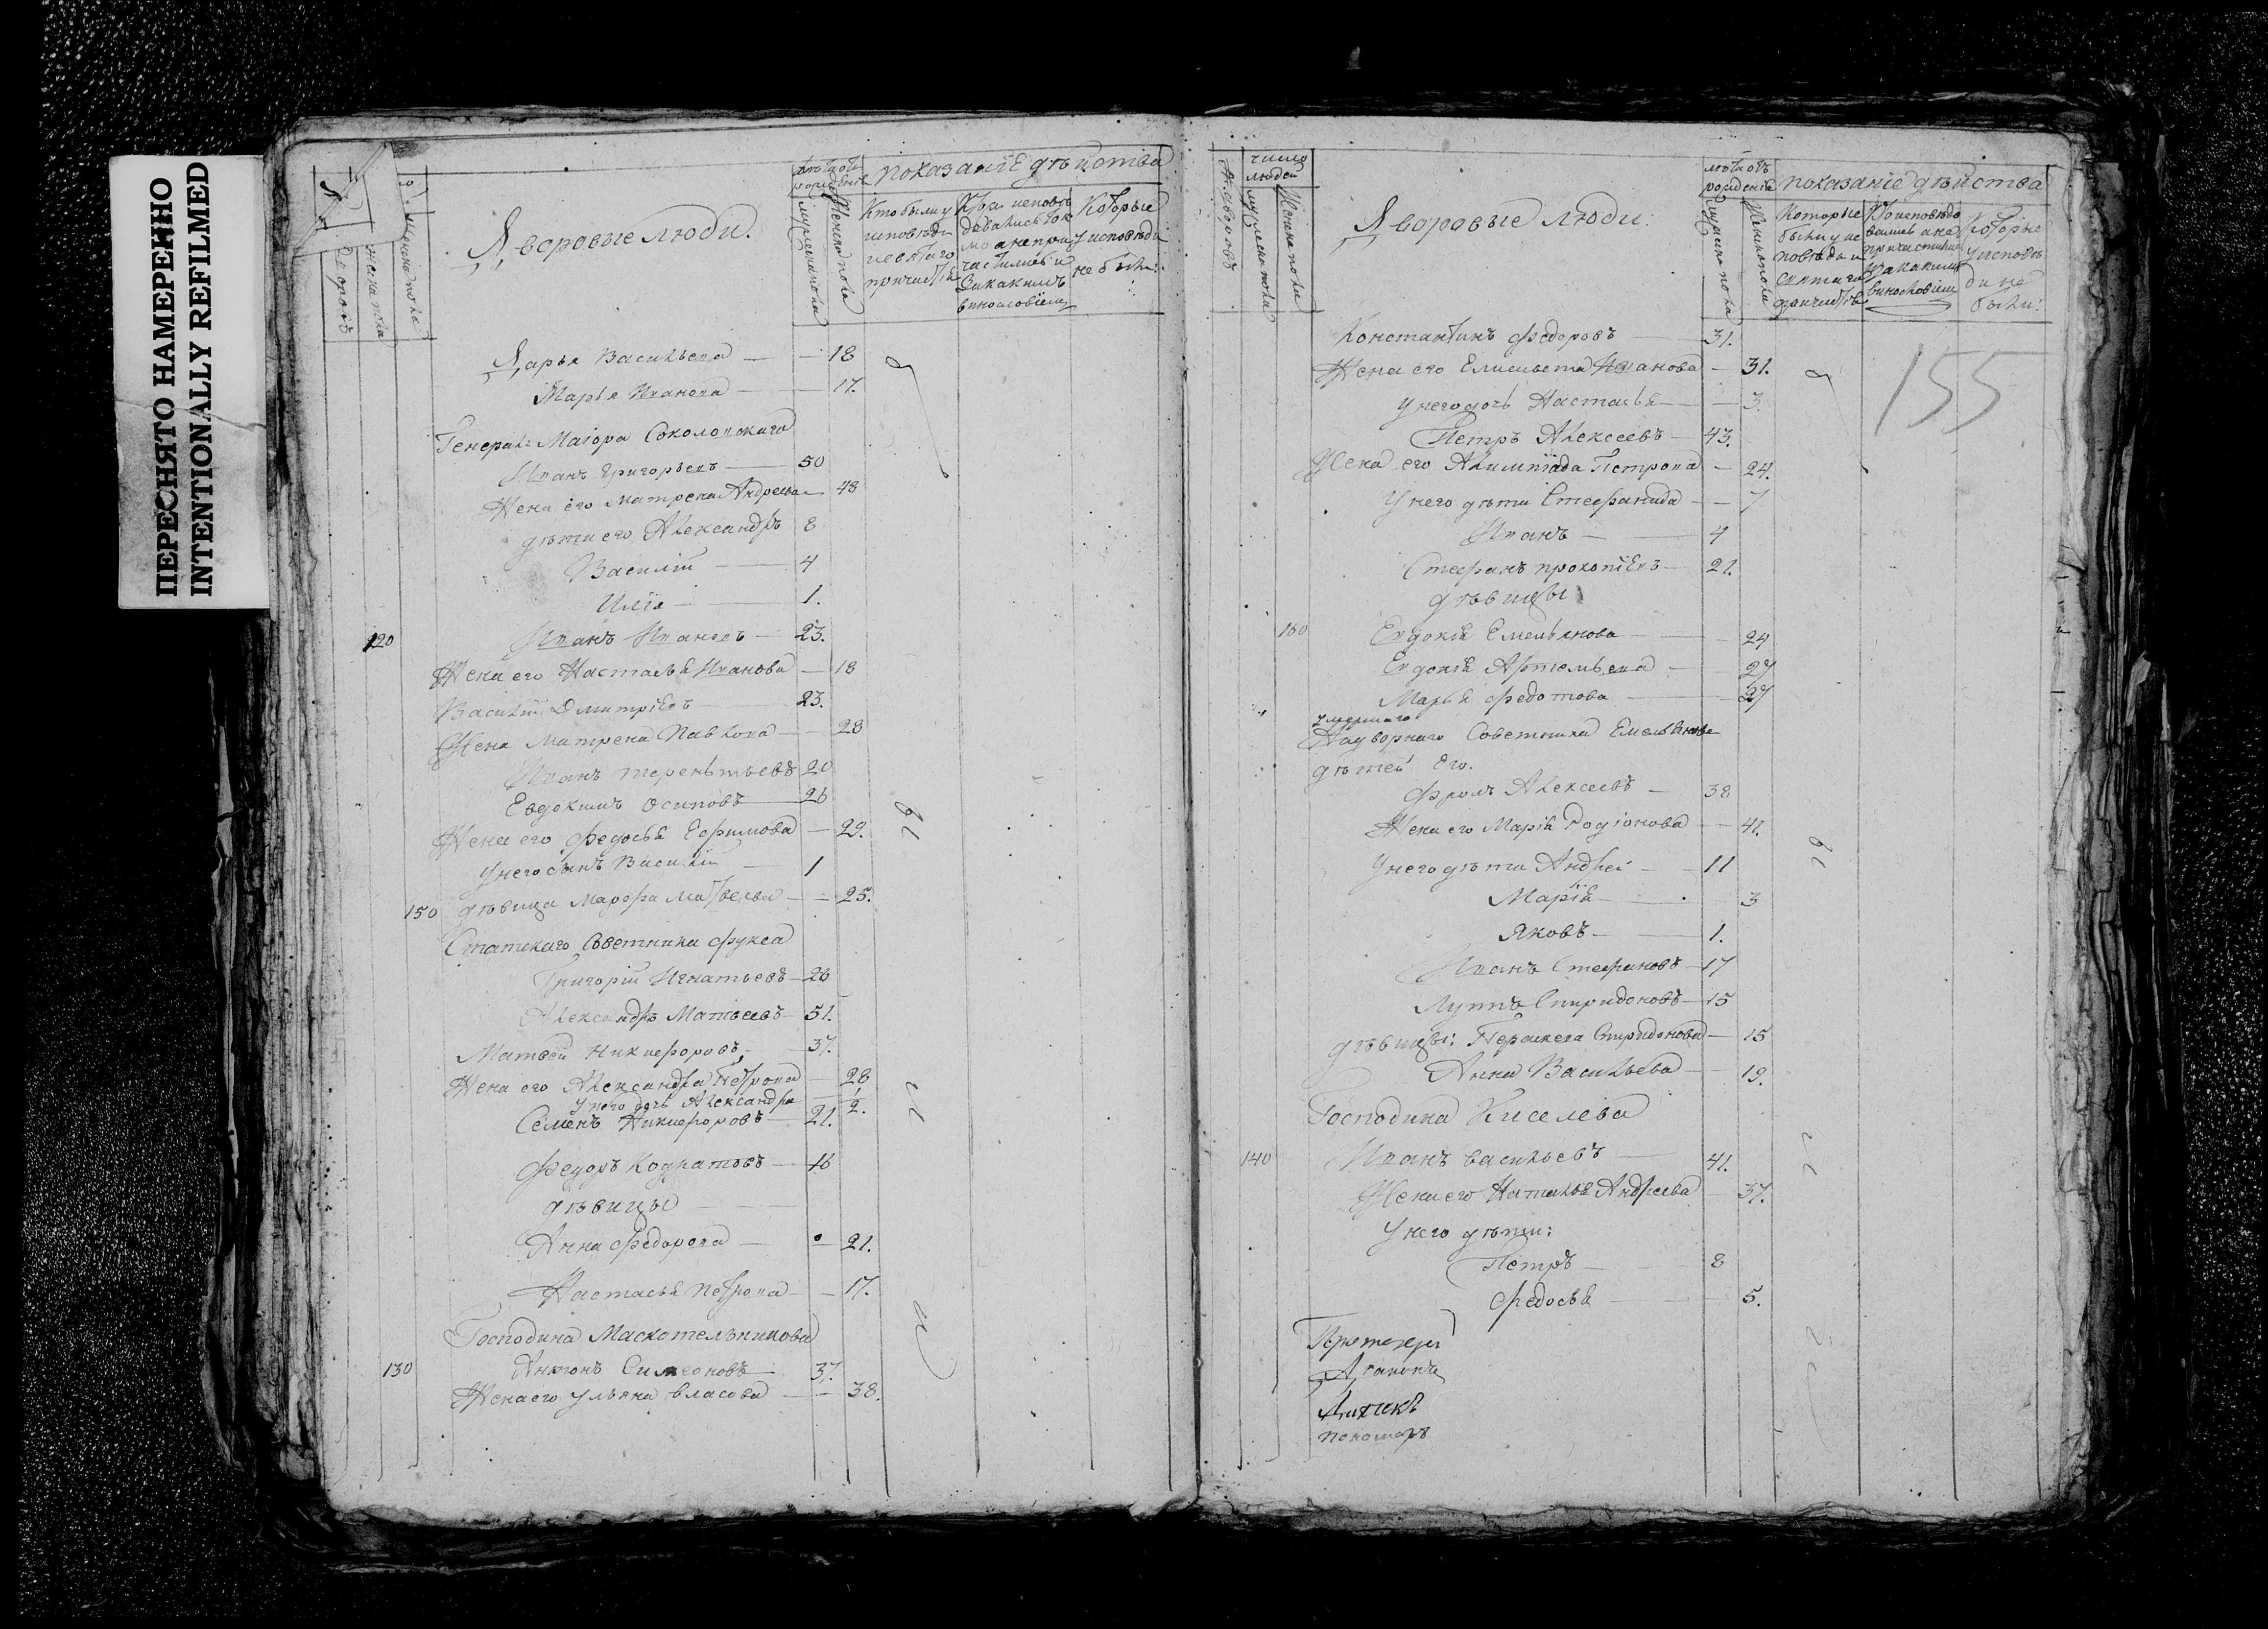 ПЕРЕСНЯТО НАМЕРЕННО
INTENTIONALLY REFILMED
показанїе дѣйства
Дворовые люди.
мужеска пола
Женска пола
Кто были у исповѣди и святаго причастїя
исповѣдывались токмо а не причастились и за какимъ винословїемъ
Которые у исповѣди не были:
Дарья Васильева — 18
Марья Иванова — 17.
Генералъ Маіора Соколовскаго
Иванъ Григорьевъ — 50
Жена его Матрена Андреева — 48
дѣти его Александръ 8
Василій — 4
Илїя — 1.
120 Иванъ Ивановъ — 23.
Жена его Настасья Иванова — 18
Василій Дмитрїевъ 23.
Жена Матрена Павлова — 28
Иванъ терентьевъ 20
Евдокимъ Осиповъ 26
Жена его Федосья Ефимова — 29.
У него сынъ Василій — 1
150 дѣвица Марфа Матвеева — 25.
Статскаго Советника Фукса
Григорїй Игнатьевъ — 26
Александръ Матвеевъ — 51.
Матвей Никифоровъ — 37.
Жена его Александра Петрова — 28
У него дочь Александра 2.
Семенъ Никифоровъ — 21.
Федоръ Кодратовъ — 16
дѣвицы
Анна Федорова — 21.
Настасья Петрова — 17.
Господина Маскотельникова
130 Антонъ Симеоновъ 37.
Жена его Ульяна Власова — 38.
число людей
лѣта отъ рожденїя
показанїе дѣйства
Дворовые люди:
мужеска пола
Женска пола
Которые были у исповѣди и святаго причастїя
Кто исповѣдовались а не причастились и за какимъ винословїем
Которые у исповѣди не были:
155
Константинъ Федоровъ 31.
Жена его Елисавета Иванова — 31.
у него дочь Настасья — 3.
Петръ Алексеевъ — 43.
Жена его Алимпїада Петрова — 24.
У него дѣти Стефанида — 7
Иванъ — 4
Стефанъ прокопїевъ — 21.
дѣвицы
150 Евдокїя Емельянова — 24
Евдокїя Артемьева — 27
Марья Федотова — 37
умершаго
Надворнаго Советника Емельянова
дѣтей его.
Фролъ Алексеевъ — 38
Жена его Марїя Родїонова — 41.
У него дѣти Андрей — 11
Марїя — 3
Яковъ — 1.
Иванъ Стефановъ — 17
Луппъ Спиридоновъ — 15
дѣвицы: Параскева Спиридонова — 15
Анна Васильева — 19.
Господина Киселева
140 Иванъ васильевъ — 41.
Жена его Наталья Андреева — 37.
У него дѣти:
Петръ — 8
Федосья — 5.
Протоерей
Дїаконъ
Дьячекъ
пономарь